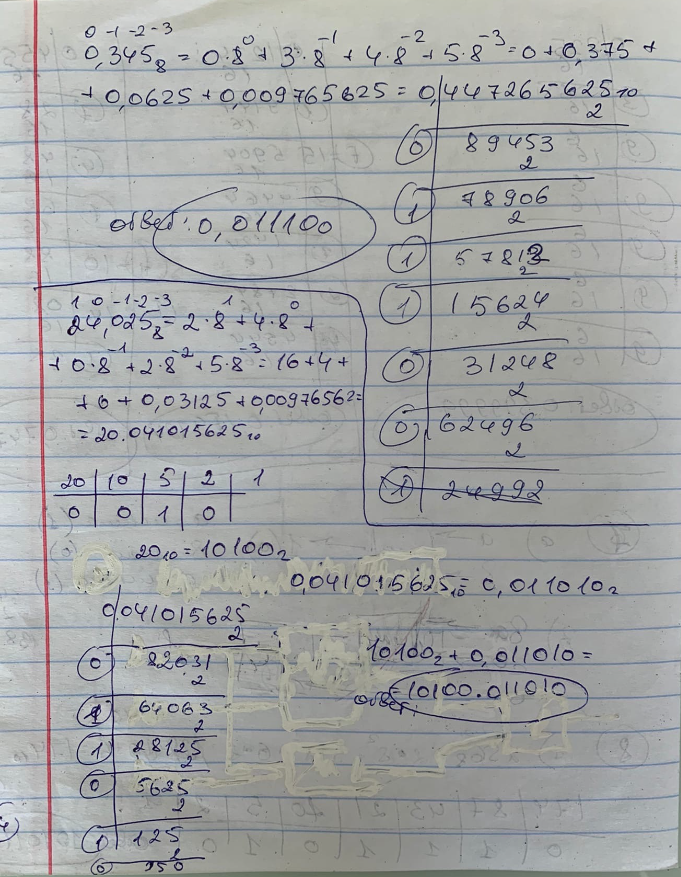 0 -1 -2 -3
0,345₈ = 0·8⁰ + 3·8⁻¹ + 4·8⁻² + 5·8⁻³ = 0 + 0,375 +
+ 0,0625 + 0,009765625 = 0,447265625₁₀
2
0 89453
2
1 78906
2
1 57812
2
1 15624
2
0 31248
2
0 62496
2
1 24992
ответ: 0,011100
1 0 -1 -2 -3
24,025₈ = 2·8¹ + 4·8⁰ +
+ 0·8⁻¹ + 2·8⁻² + 5·8⁻³ = 16 + 4 +
+ 0 + 0,03125 + 0,00976562 =
= 20.041015625₁₀
20 10 5 2 1
0 0 1 0
20₁₀ = 10100₂
0,041015625₁₀ = 0,011010₂
0,041015625
2
0 82031
2
1 64063
2
1 28125
2
0 5625
2
1 125
2
0 250
10100₂ + 0,011010 =
ответ: = 10100.011010